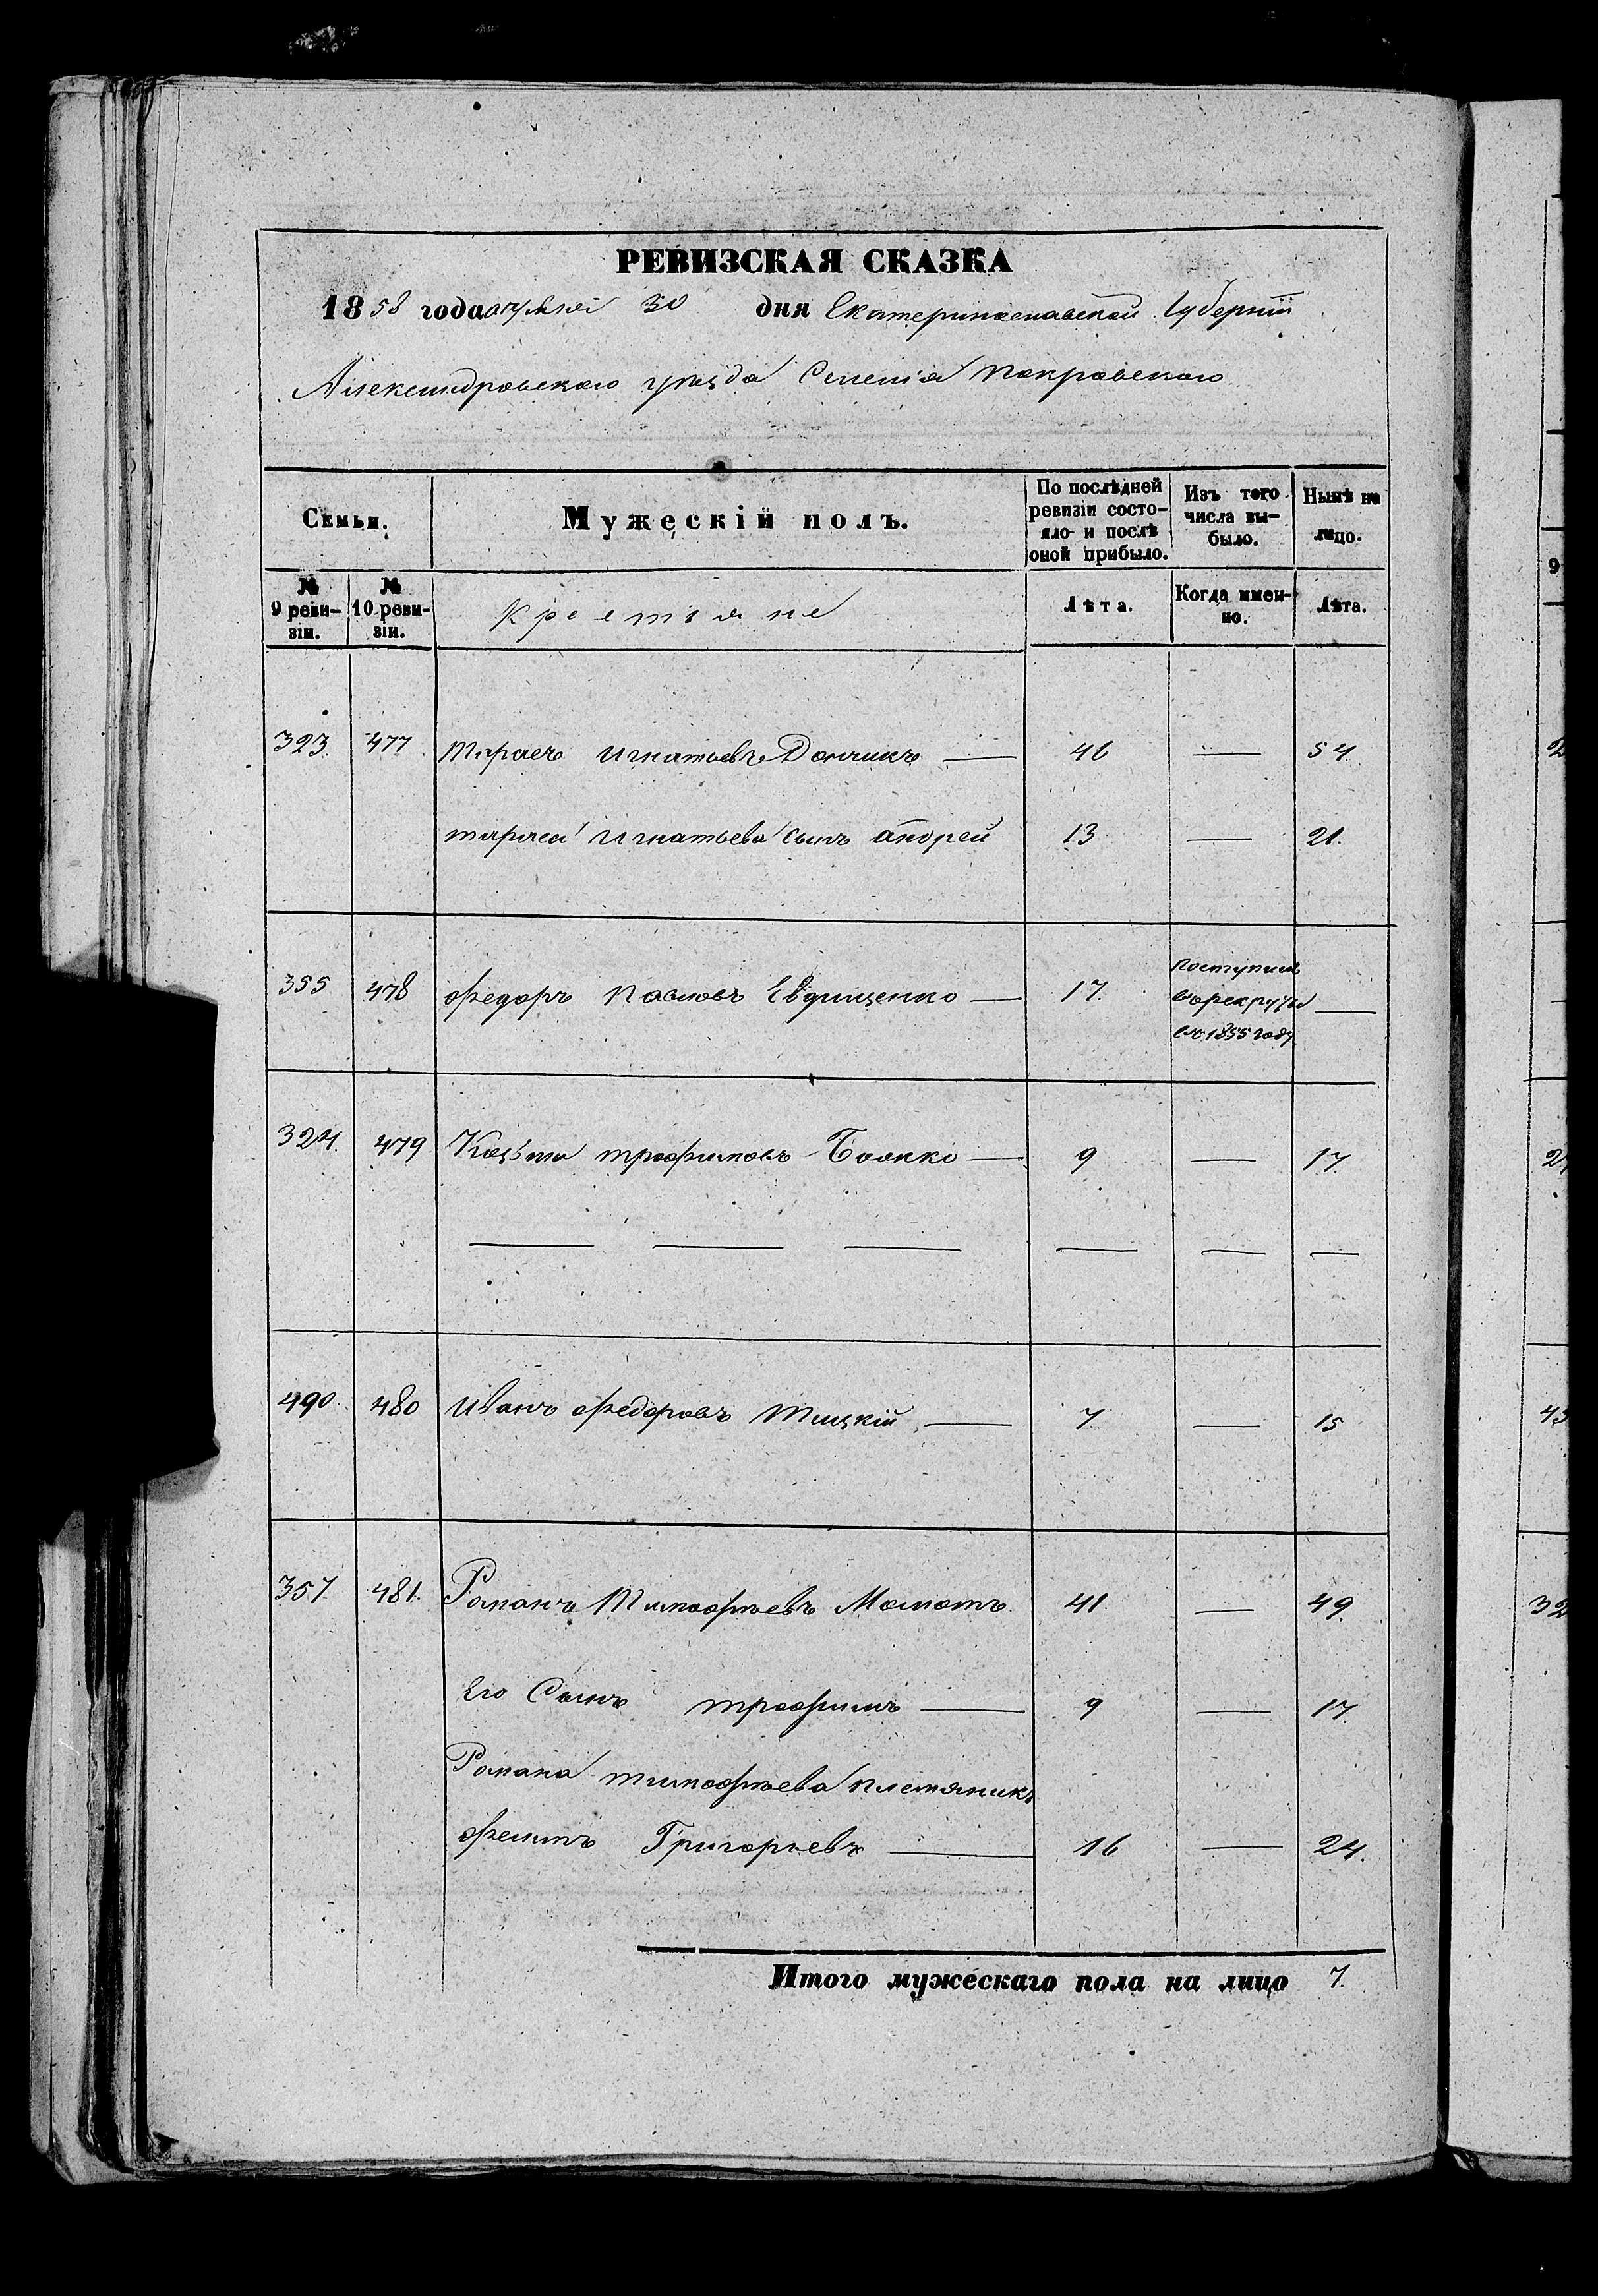 РЕВИЗСКАЯ СКАЗКА
1858 года апрѣля 30 дня Екатеринославской Губерніи
Александровскаго уѣзда Селенія Покровскаго
Семьи.
Мужескій полъ.
По послѣдней ревизіи состо-
яло и послѣ оной прибыло.
Изъ того числа вы-
было.
Нынѣ на лицо.
№ 9 реви-
зіи.
№ 10 реви-
зіи.
Крестьяне
Лѣта.
Когда имен-
но.
Лѣта.
323. 477 Тарасъ Игнатьевъ Дончикъ — 46 — 54.
тараса Игнатьева сынъ андрей 13 — 21.
355 478 Федоръ Павловъ Евдищенко — 17. поступилъ
въ рекруты —
въ 1855 году
324. 479 Козьма трофимовъ Бойко — 9 — 17.
— — — — — —
490. 480 Иванъ Федоровъ Тицкій — 7. — 15
357 481. Романъ Тимофѣевъ Момотъ 41. — 49.
Его Сынъ трофимъ — 9 — 17.
Романа тимофѣева племяникъ
Григорьевъ — 16 — 24.
Итого мужескаго пола на лицо 7.
9
2
32